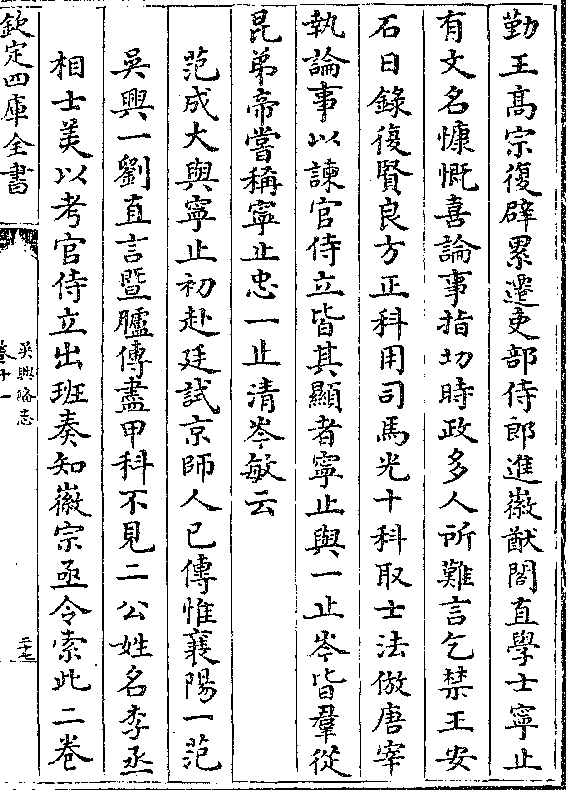 勤王髙宗復辟累遷吏部侍郎進徽猷閣直學士寧止
有文名慷慨喜論事指切時政多人所難言乞禁王安
石日錄復賢良方正科用司馬光十科取士法倣唐宰
執論事以諫官侍立皆其顯者寧止與一止岑皆羣從
昆弟帝嘗稱寧止忠一止清岑敏云
范成大與寧止初赴廷試京師人已傳惟襄陽一范
吳興一劉直言暨臚傳盡甲科不見二公姓名李丞
相士美以考官侍立出班奏知徽宗亟令索此二卷
欽定四庫全書
吳興備志
卷十一